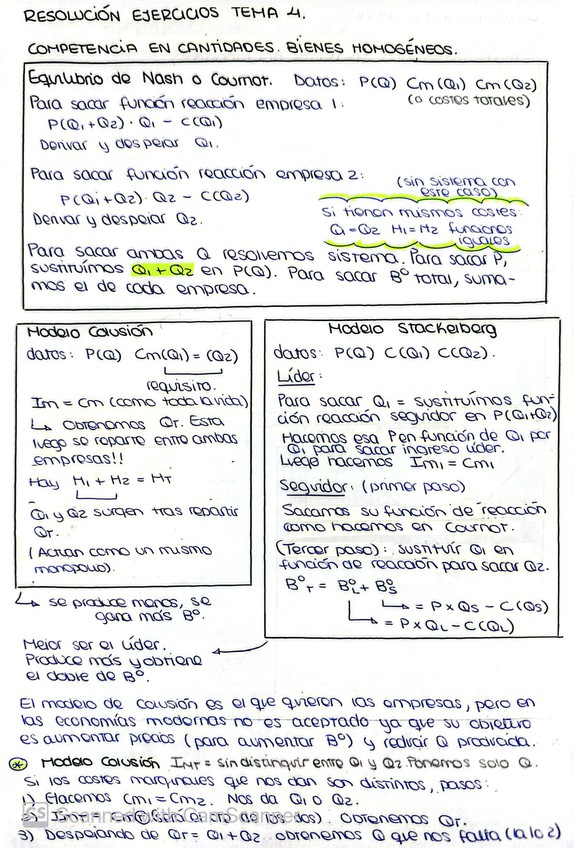 RESOLUCIÓN EJERCICIOS TEMA 4.
COMPETENCIA EN CANTIDADES. BIENES HOMOGÉNEOS.
Equilibrio de Nash o Cournot. Datos: P(Q) Cm(Q1) Cm(Q2)
(o costes totales)
Para sacar función reacción empresa 1:
P(Q1+Q2)·Q1 - C(Q1)
Derivar y despejar Q1.
Para sacar función reacción empresa 2:
P(Q1+Q2)·Q2 - C(Q2)
Derivar y despejar Q2.
(sin sistema con
este caso)
Si tienen mismos costes:
Q1=Q2 H1=H2 funciones
iguales
Para sacar ambas Q resolvemos sistema. Para sacar P,
sustituímos Q1+Q2 en P(Q). Para sacar Bº total, suma-
mos el de cada empresa.
Modelo Colusión
datos: P(Q) Cm(Q1)=(Q2)
requisito.
Im = Cm (como toda la vida)
↳ Obtenemos QT. Esta
luego se reparte entre ambas
empresas!!
Hay H1 + H2 = HT
Q1 y Q2 surgen tras repartir
QT.
(Actúan como un mismo
monopolio).
↳ se produce menos, se
gana más Bº.
Modelo Stackelberg
datos: P(Q) C(Q1) C(Q2).
Líder:
Para sacar Q1 = sustituímos fun-
ción reacción seguidor en P(Q1+Q2)
Hacemos esa P en función de Q1 por
Q1 para sacar ingreso líder.
Luego hacemos Im1 = Cm1
Seguidor: (primer paso)
Sacamos su función de reacción
como hacemos en Cournot.
(Tercer paso): sustituir Q1 en
función de reacción para sacar Q2.
BºT = BºL + BºS
↳ = P x QS - C(QS)
↳ = P x QL - C(QL)
Mejor ser el líder.
Produce más y obtiene
el doble de Bº.
El modelo de colusión es el que quieren las empresas, pero en
las economías modernas no es aceptado ya que su objetivo
es aumentar precios (para aumentar Bº) y reducir Q producida.
* Modelo Colusión ImT = sin distinguir entre Q1 y Q2. Ponemos solo Q.
Si los costes marginales que nos dan son distintos, pasos:
1) Hacemos Cm1 = Cm2. Nos da Q1 o Q2.
2) ImT = Cm (uno de los dos). Obtenemos QT.
CS Scanned with CamScanner
3) Despejando de QT = Q1 + Q2 obtenemos Q que nos falta (la 1 o 2)